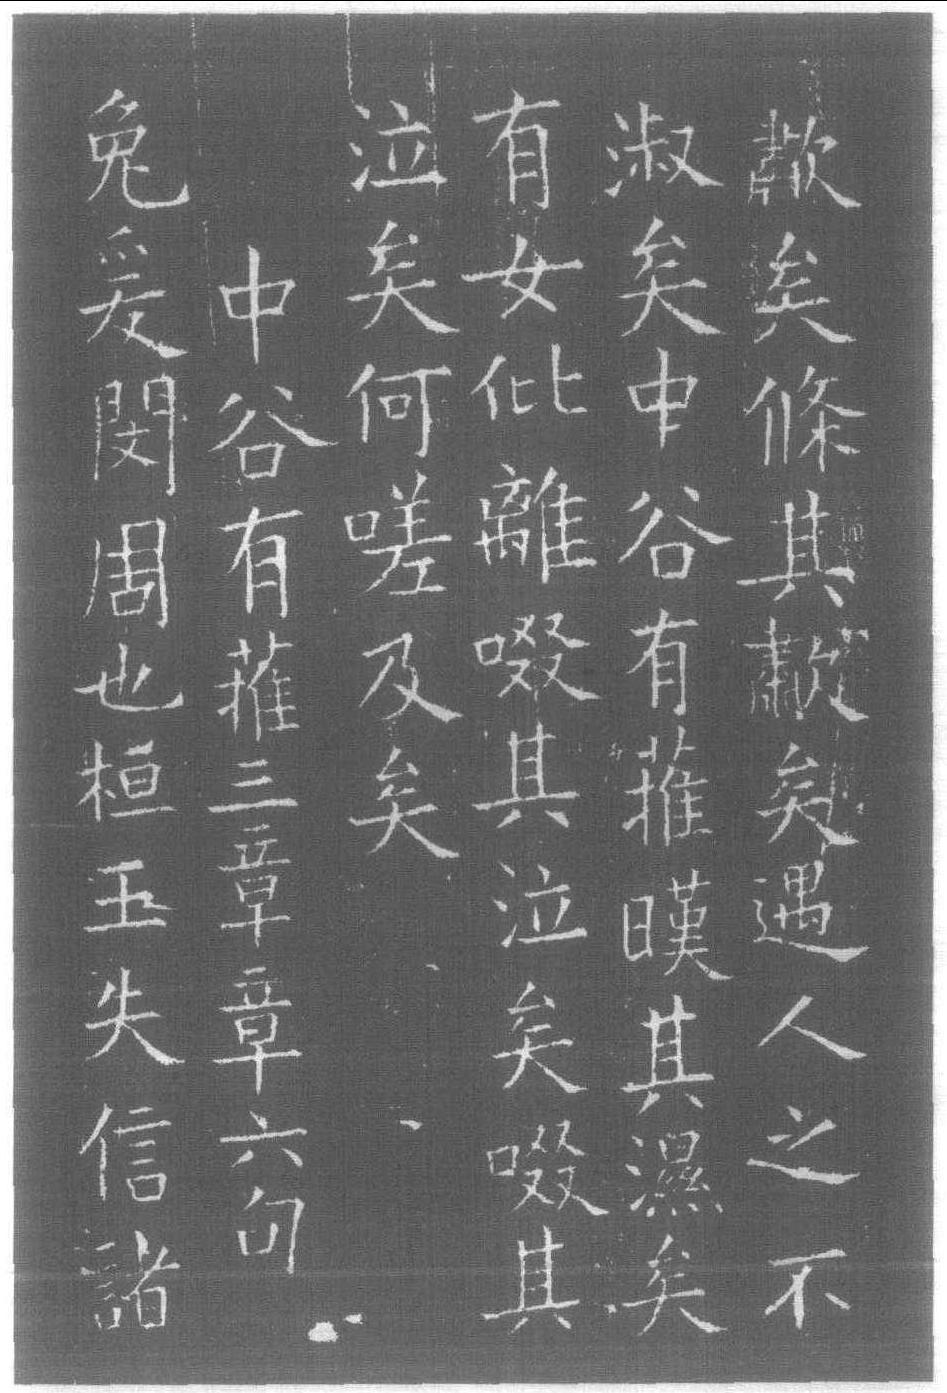 歗矣條其歗矣遇人之不
淑矣中谷有蓷暵其濕矣
有女仳離啜其泣矣啜其
泣矣何嗟及矣
中谷有蓷三章章六句
兔爰閔周也桓王失信諸